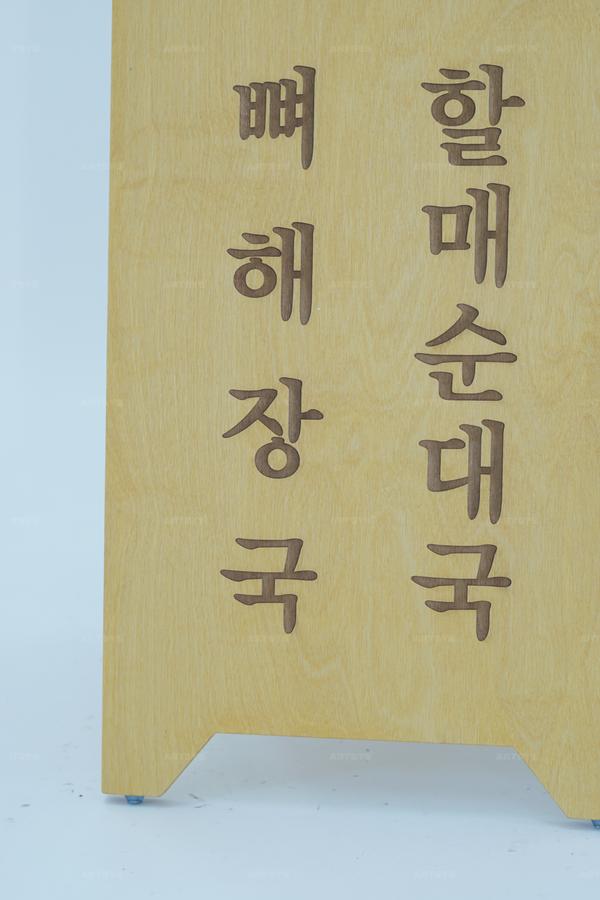 할매순대국
뼈해장국